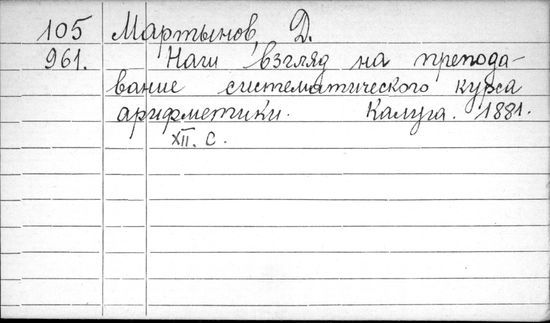 105 Мартынов, Д.
961. Наш взгляд на препода-
вание систематического курса
арифметики. Калуга. 1881.
XII. с.